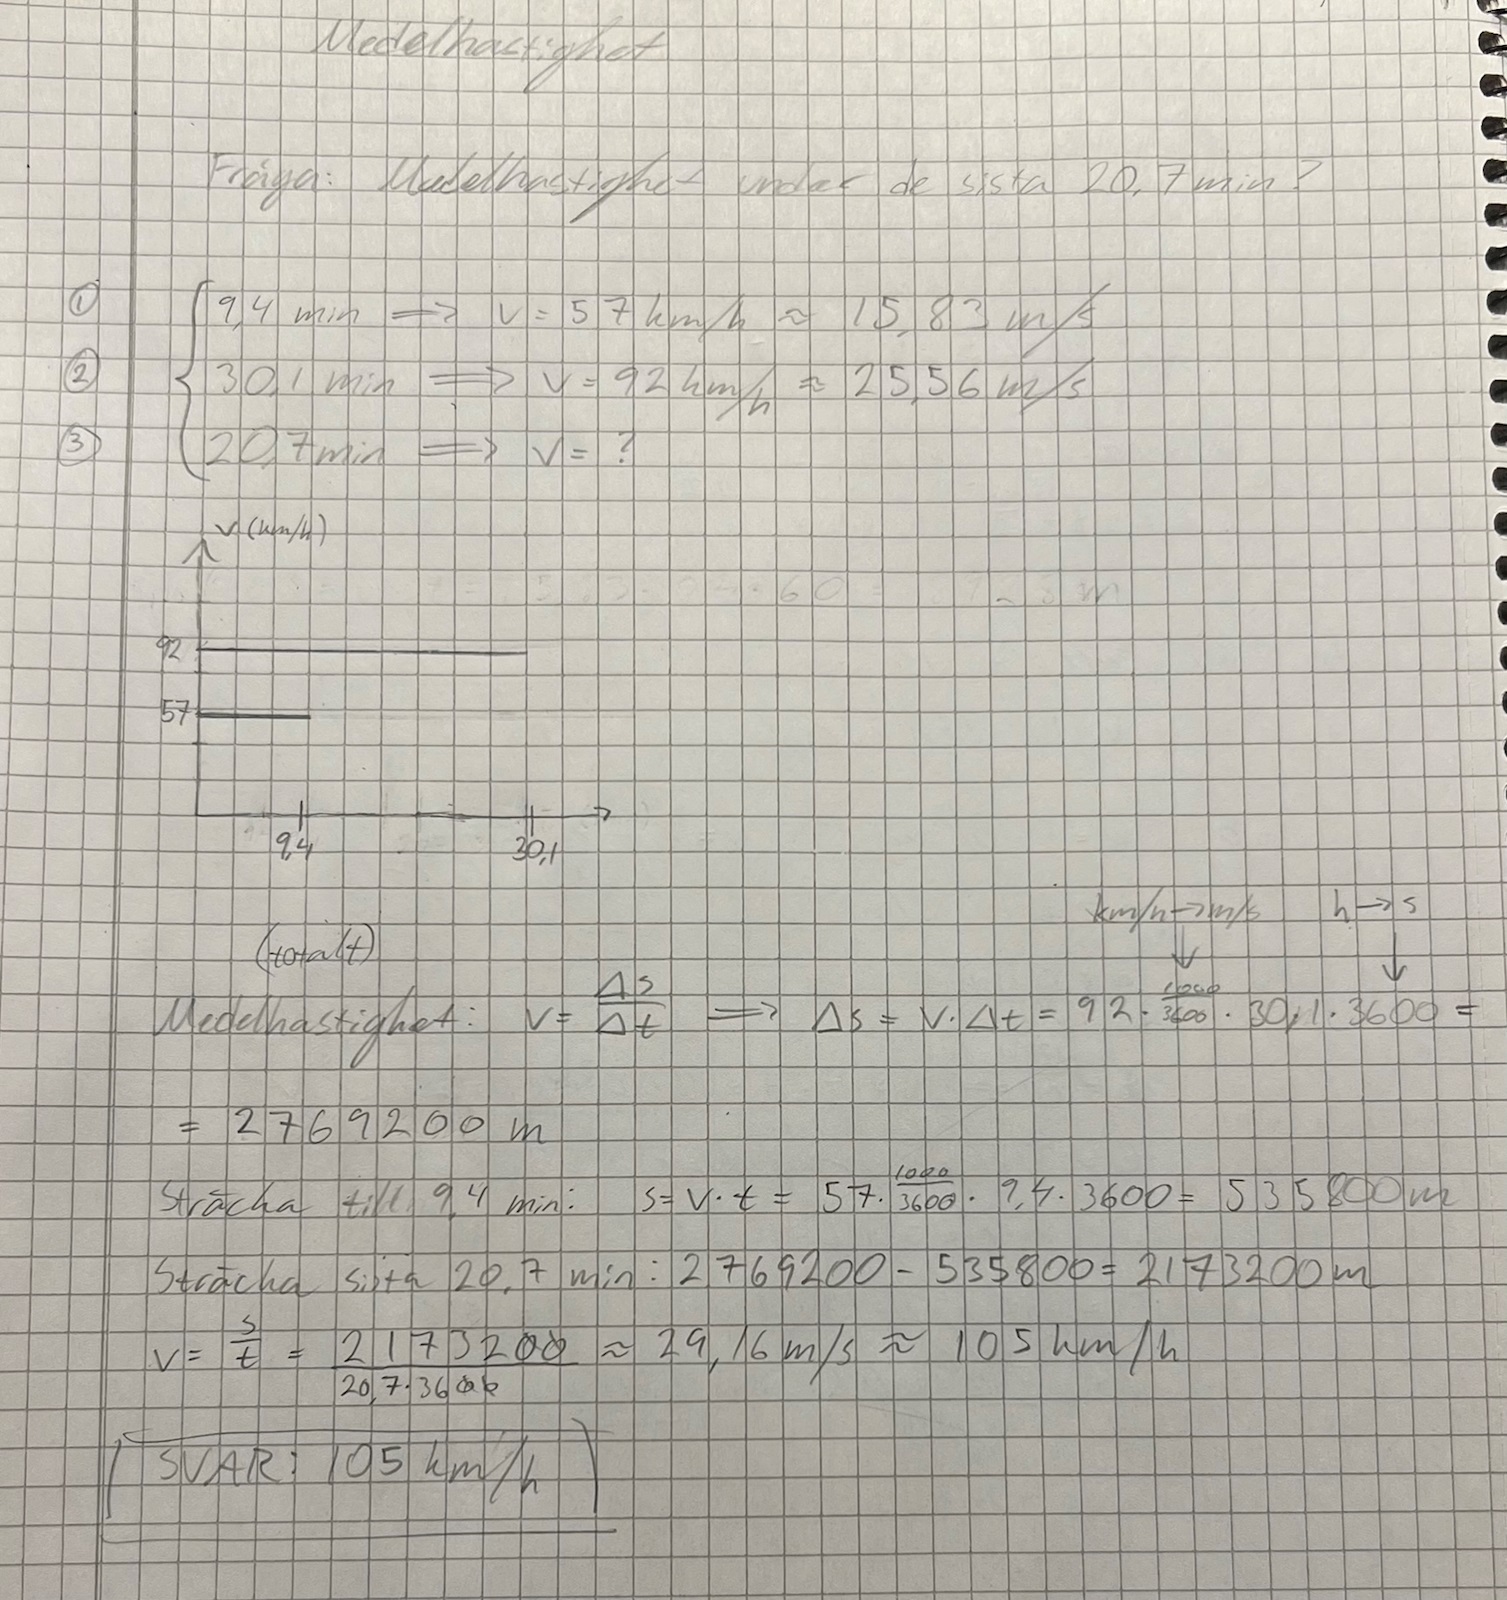 Medelhastighet
Fråga: Medelhastighet under de sista 20,7 min?
① 9,4 min => v = 57 km/h ≈ 15,83 m/s
② 30,1 min => v = 92 km/h ≈ 25,56 m/s
③ 20,7 min => v = ?
v (km/h)
92
57
9,4 30,1
km/h → m/s h → s
(totalt)
Medelhastighet: v = Δs/Δt => Δs = v · Δt = 92 · 1000/3600 · 30,1 · 3600 =
= 2769200 m
Sträcka till 9,4 min: s = v · t = 57 · 1000/3600 · 9,4 · 3600 = 535800 m
Sträcka sista 20,7 min: 2769200 - 535800 = 2173200 m
v = s/t = 2173200/20,7·3600 ≈ 29,16 m/s ≈ 105 km/h
SVAR: 105 km/h